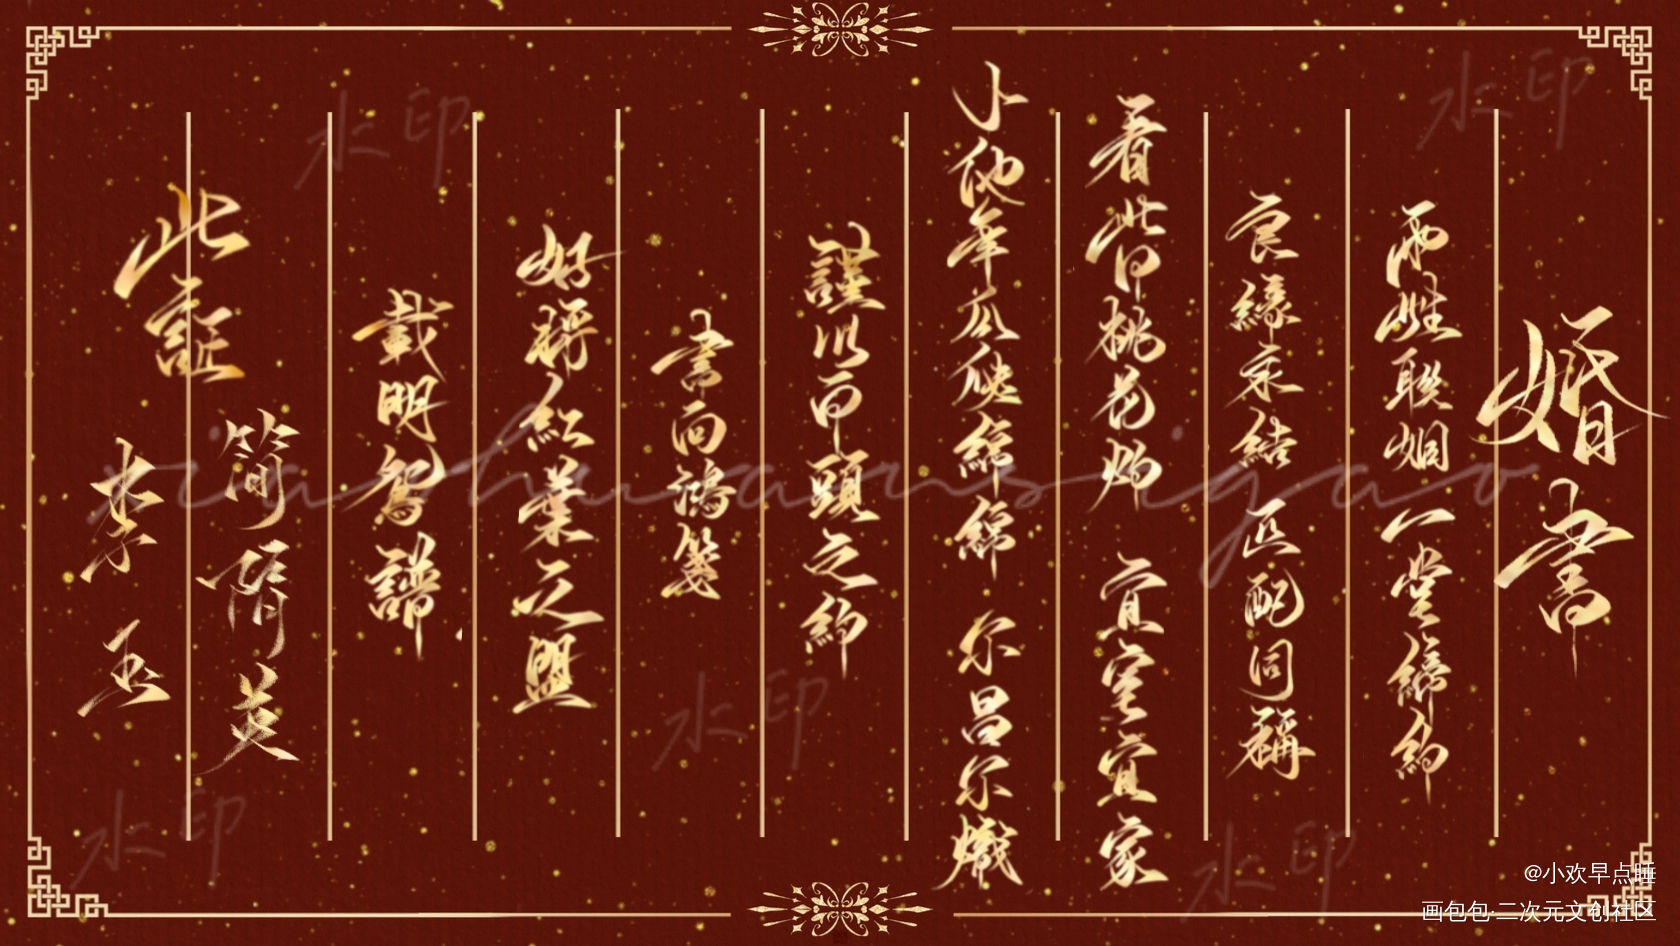 婚書
兩姓聯姻 一堂締約
良緣永結 匹配同稱
看此日桃花灼 宜室宜家
卜他年瓜瓞綿綿 尔昌尔熾
謹以白頭之約
書向鴻箋
好將紅葉之盟
載明鴛譜
此證
简隋英
李玉
水印
水印
水印
水印
水印
xiaohuansigao
@小欢早点睡
画包包·二次元文创社区